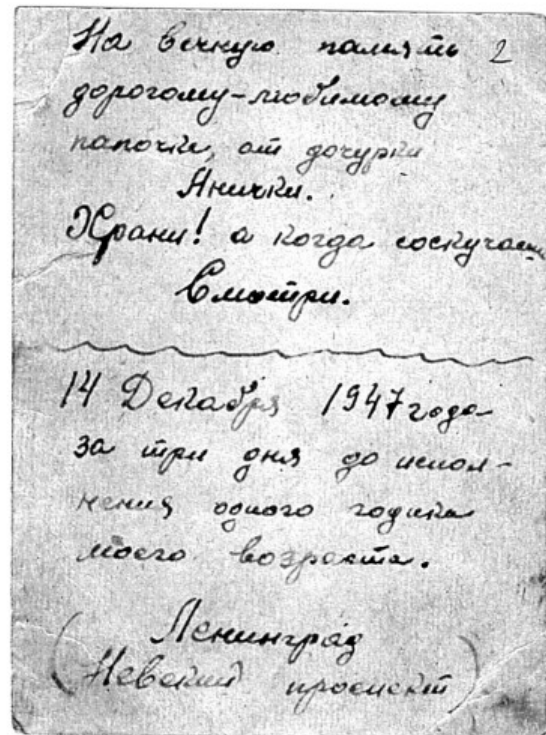 На вечную память 2
дорогому-любимому
папочке, от дочурки
Анички.
Храни! а когда соскучаеш
Смотри.
14 Декабря 1947 года
за три дня до испол-
нения одного годика
моего возраста.
Ленинград
(Невский проспект)